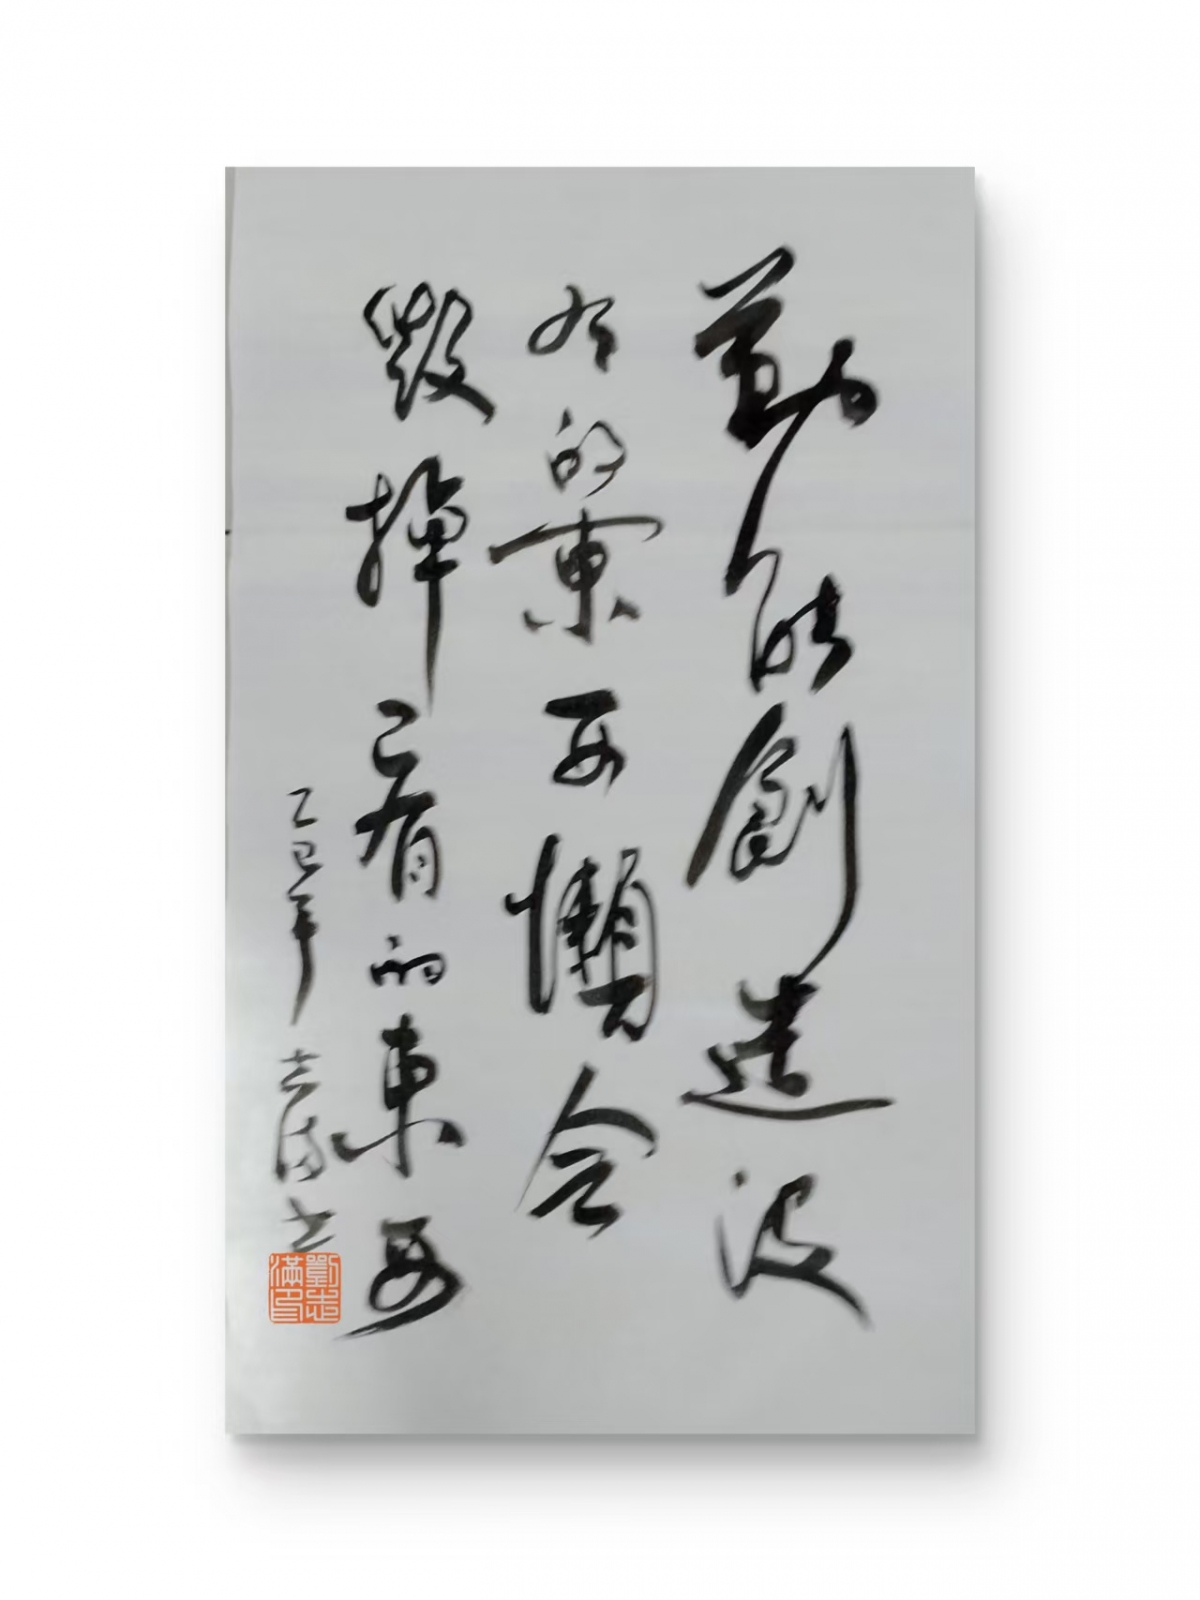 勤能創造沒
有的東西懶会
毀掉已有的東西
乙巳年 志滿书
劉志滿印